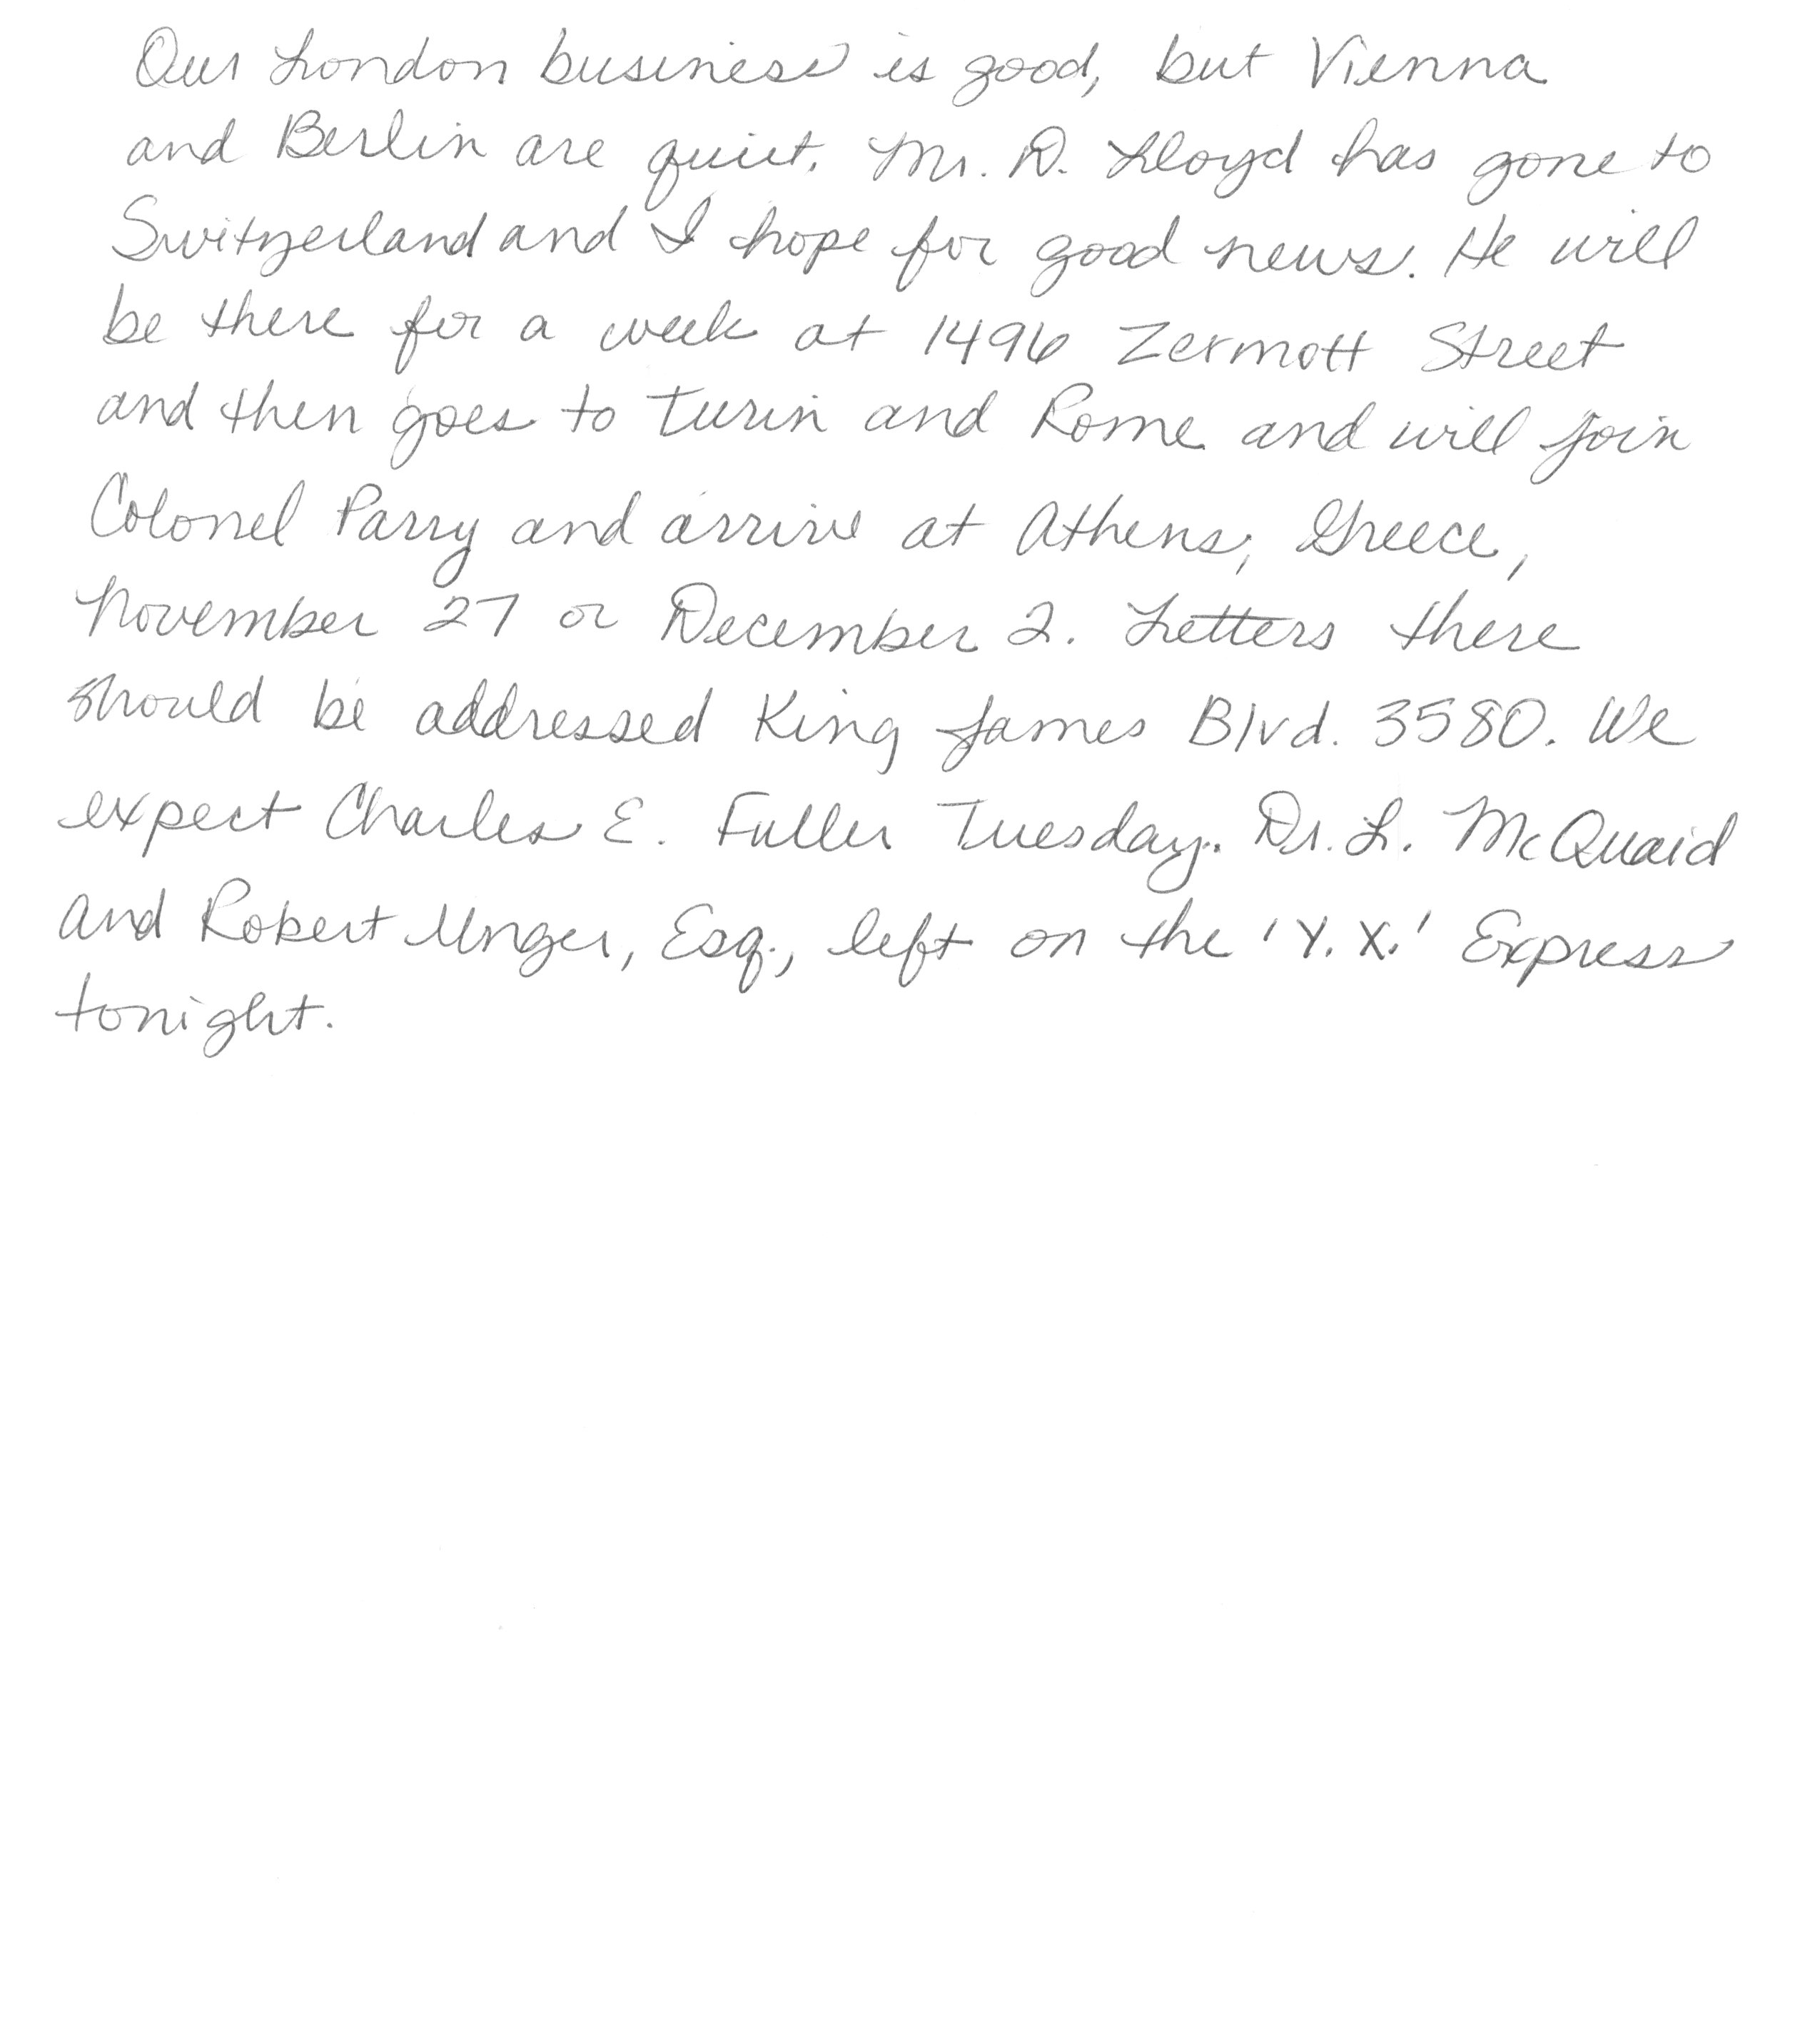 Our London business is good, but Vienna
and Berlin are quiet. Mr. D. Lloyd has gone to
Switzerland and I hope for good news. He will
be there for a week at 1496 Zermott Street
and then goes to Turin and Rome and will join
Colonel Parry and arrive at Athens, Greece,
November 27 or December 2. Letters there
should be addressed King James Blvd. 3580. We
expect Charles E. Fuller Tuesday. Dr. L. McQuaid
and Robert Unger, Esq., left on the 'Y.X.' Express
tonight.